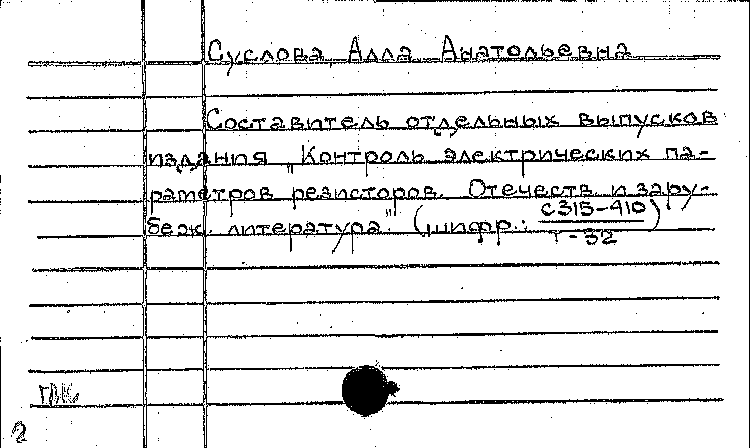 Суслова, Алла Анатольевна
Составитель отдельных выпусков
издания „Контроль электрических па-
раметров резисторов. Отечеств. и зару-
беж. литература." (шифр: С315-410
Т-32)
ГПК
2